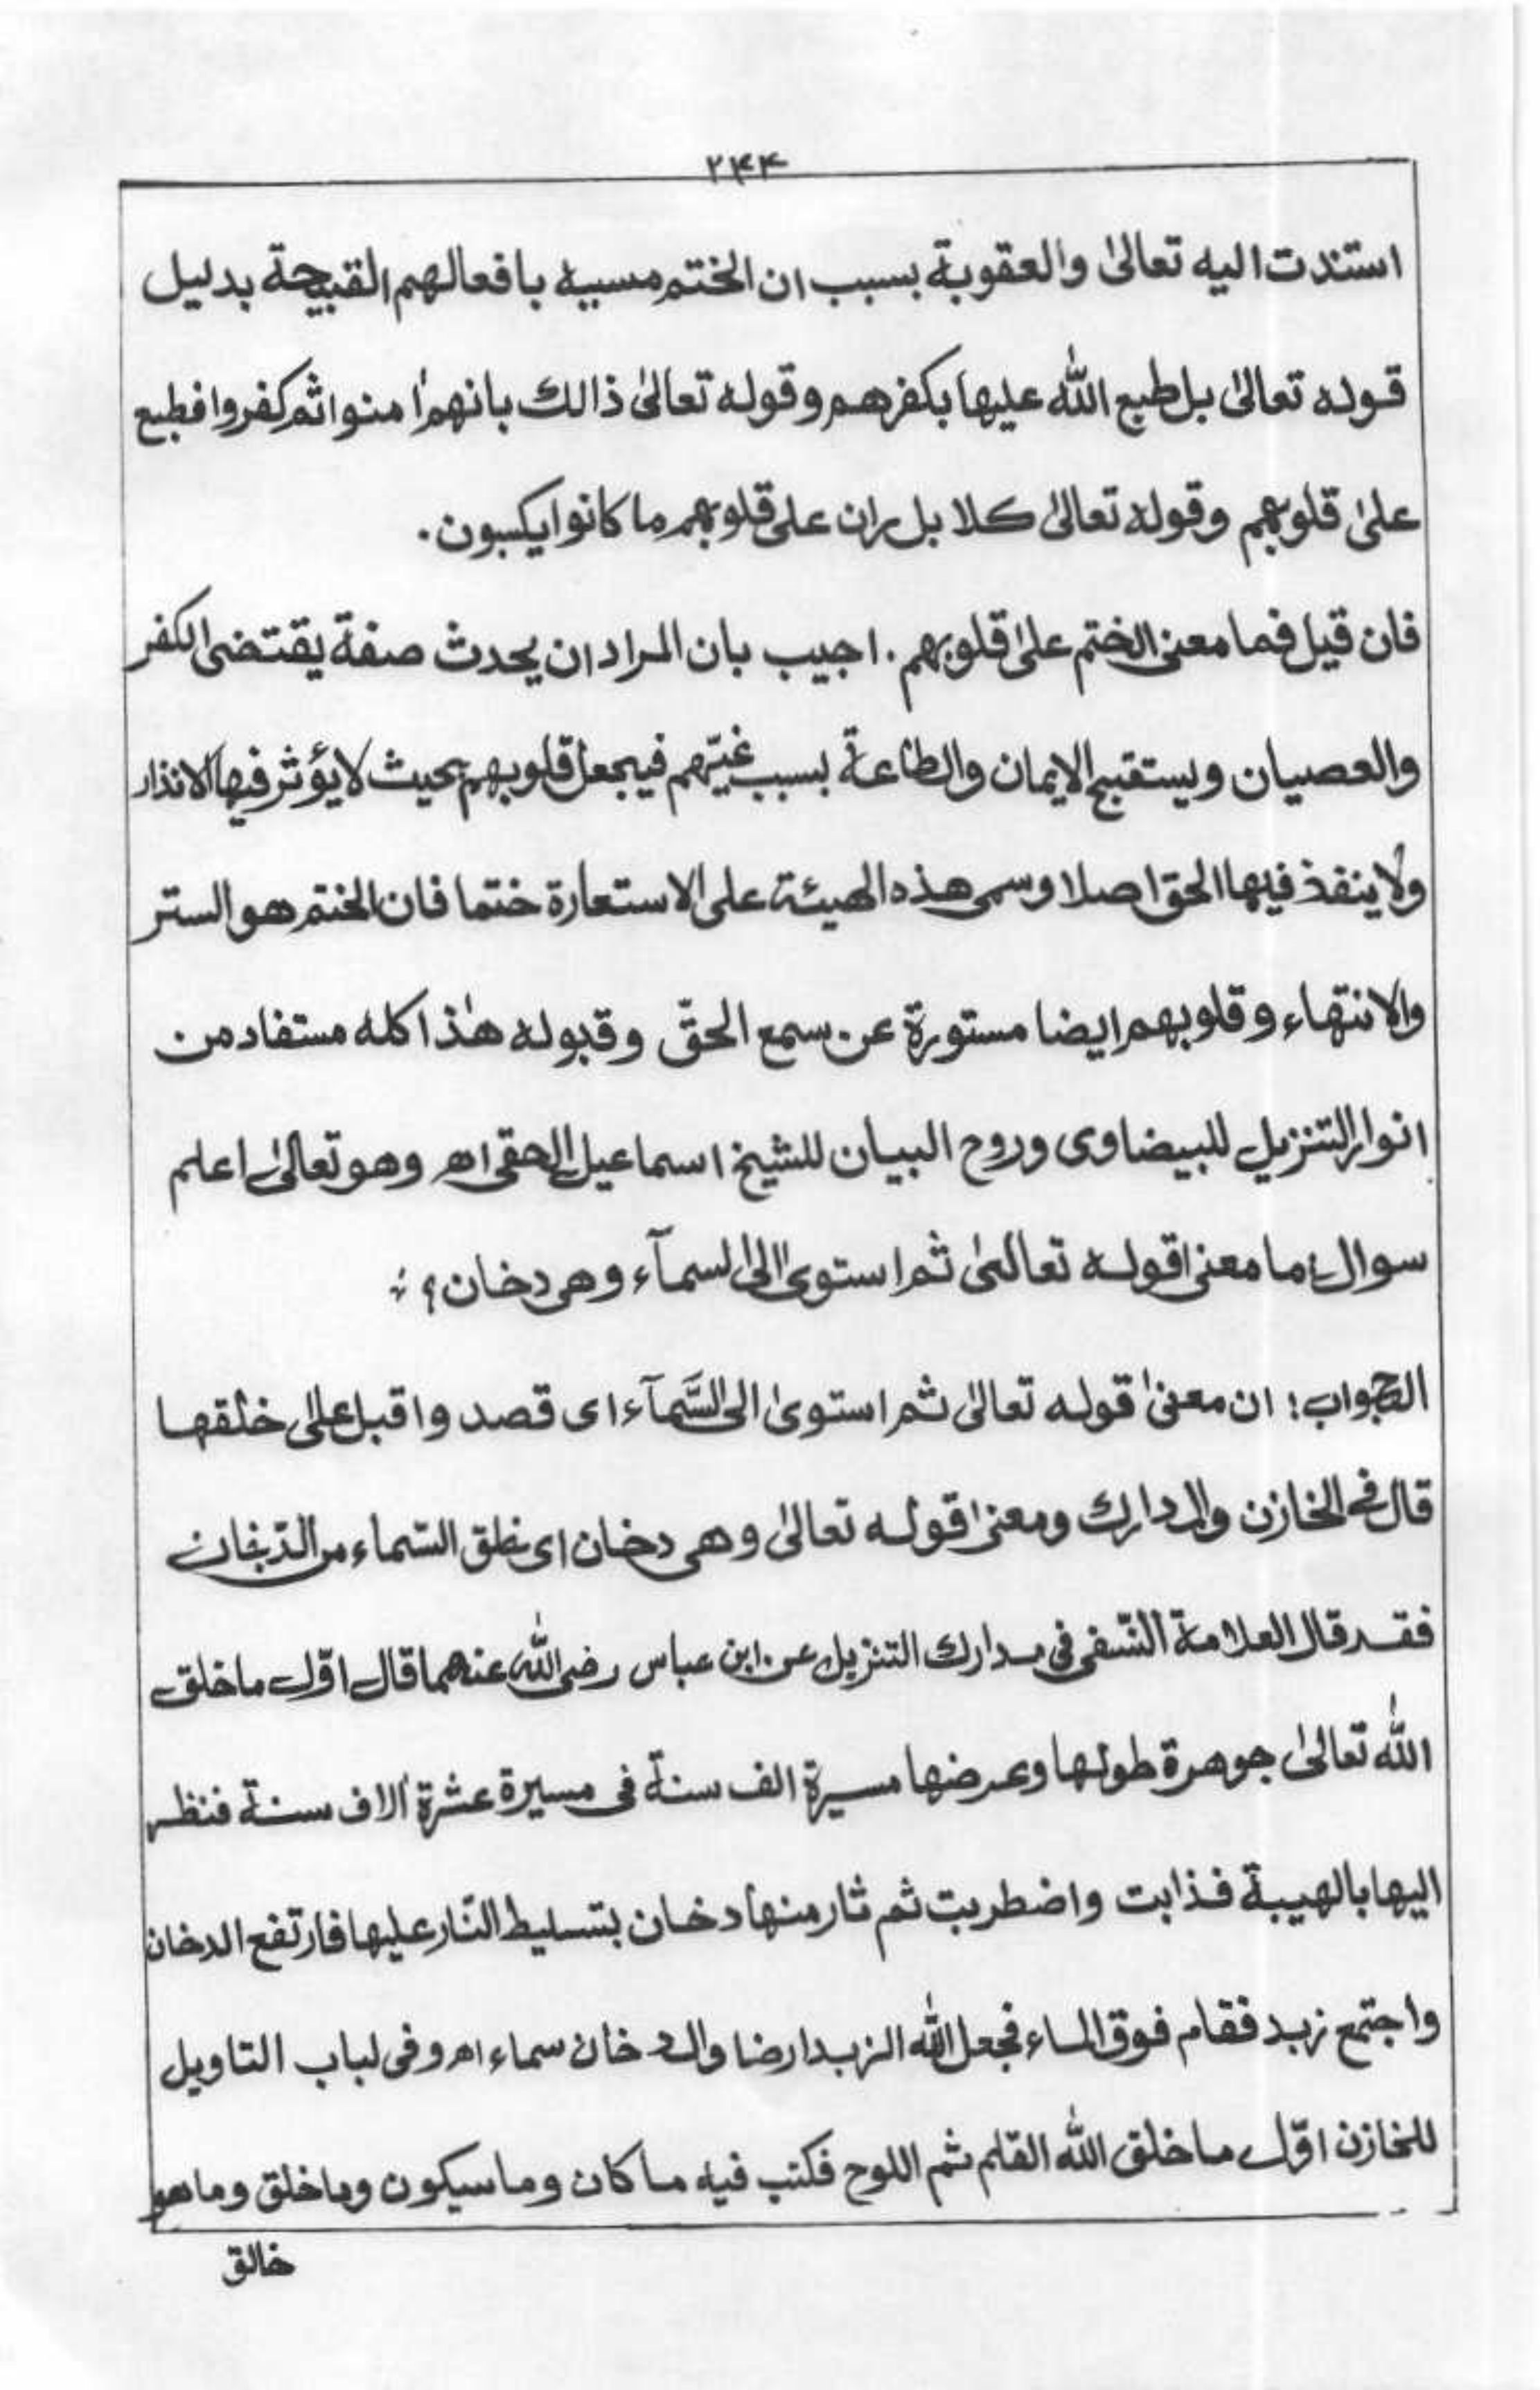 ۲۴۴
استندت اليه تعالىٰ والعقوبة بسبب ان الختم مسبيه بافعالهم القبيحة بدليل
قوله تعالىٰ بل طبع الله عليها بكفرهم وقوله تعالىٰ ذالك بانهم اٰمنوا ثم كفروا فطبع
علىٰ قلوبهم وقوله تعالىٰ كلا بل ران علىٰ قلوبهم ما كانوا يكسبون.
فان قيل فما معنى الختم علىٰ قلوبهم. اجيب بان المراد ان يحدث صفة يقتضى الكفر
والعصيان ويستقبح الايمان والطاعة بسبب غيّهم فيجعل قلوبهم بحيث لا يؤثر فيها الانذار
ولا ينفذ فيها الحق اصلا وسمى هذه الهيئة على الاستعارة ختما فان الختم هو الستر
والانتهاء وقلوبهم ايضا مستورة عن سمع الحقّ وقبوله هٰذا كله مستفاد من
انوار التنزيل للبيضاوى وروح البيان للشيخ اسماعيل الحقى اھ وهو تعالىٰ اعلم
سوال: ما معنىٰ قوله تعالىٰ ثم استوىٰ الى السمآء وهى دخان؟
الجواب: ان معنىٰ قوله تعالىٰ ثم استوىٰ الى السَّمآء اى قصد واقبل علىٰ خلقها
قال فى الخازن والمدارك ومعنىٰ قوله تعالىٰ وهى دخان اى خلق السّماء من الدّخان
فقد قال العلامة النّسفى فى مدارك التنزيل عن ابن عباس رضى الله عنهما قال اوّل ما خلق
الله تعالىٰ جوهرة طولها وعرضها مسيرة الف سنة فى مسيرة عشرة اٰلاف سنة فنظر
اليها بالهيبة فذابت واضطربت ثم ثار منها دخان بتسليط النّار عليها فارتفع الدخان
واجتمع زبد فقام فوق الماء فجعل الله الزبد ارضا والدخان سماء اھ وفى لباب التاويل
للخازن اوّل ما خلق الله القلم ثم اللوح فكتب فيه ما كان وما سيكون وما خلق وما هو
خالق